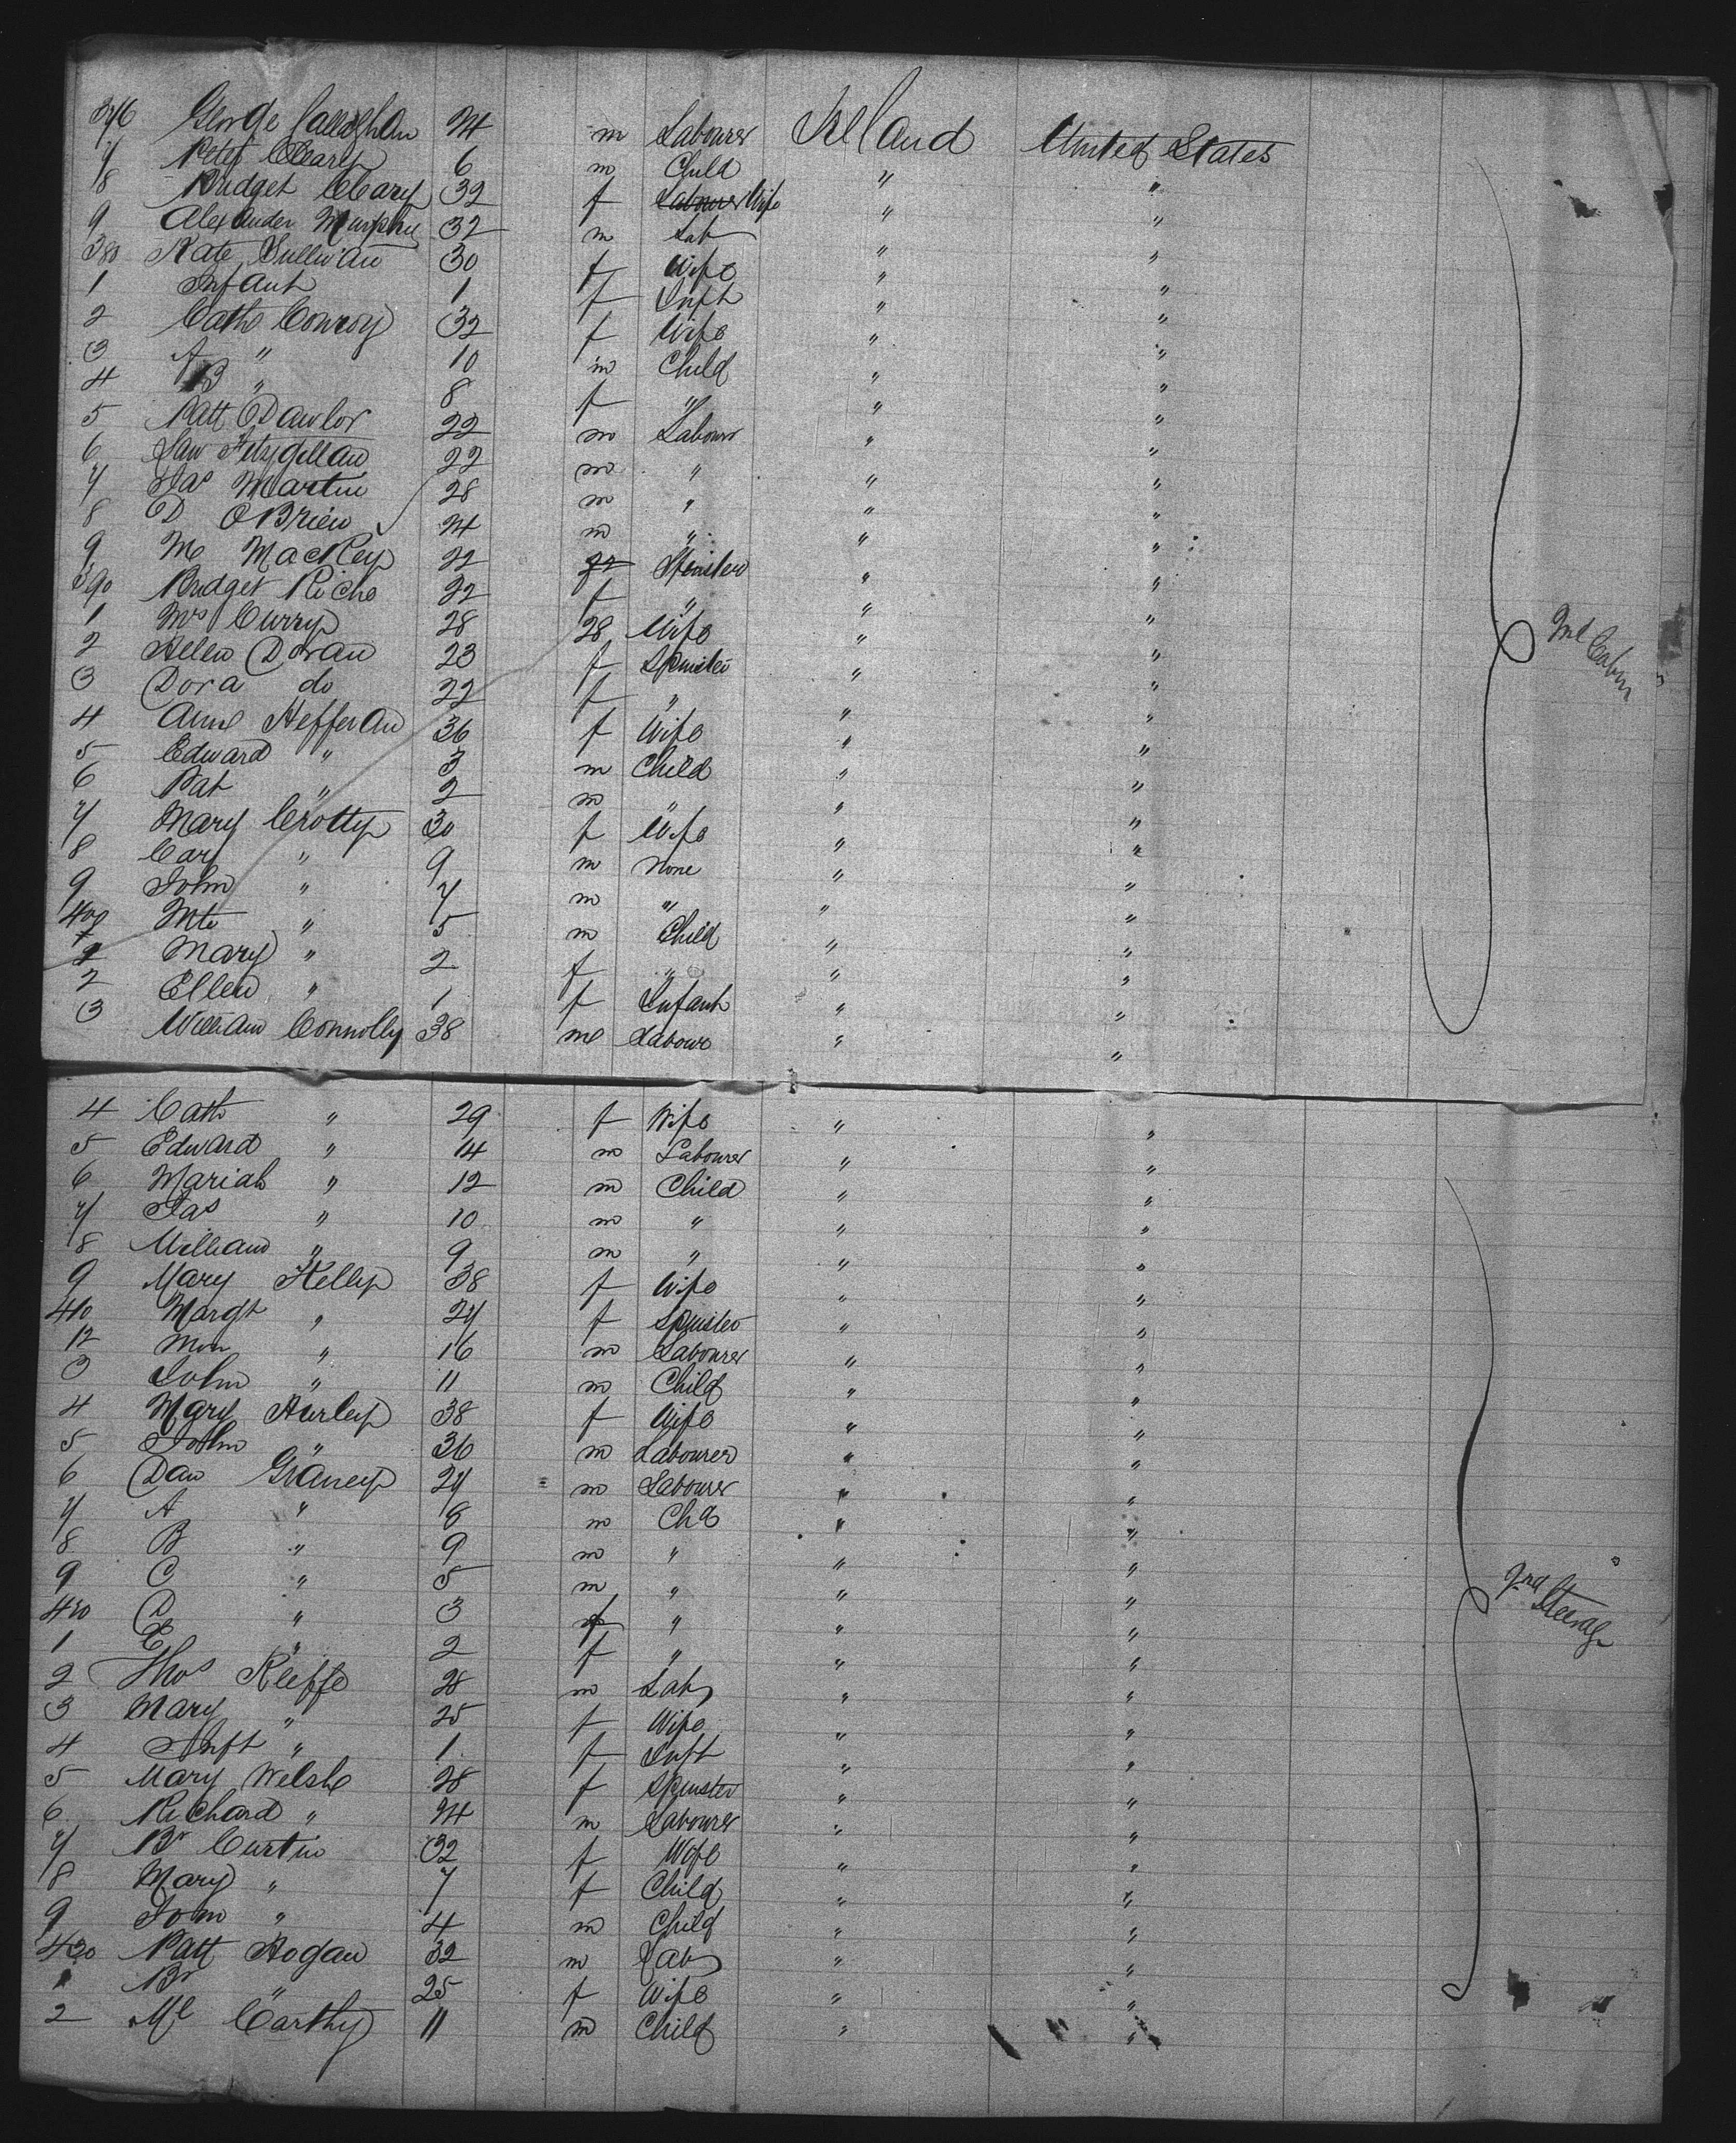 376 George Callaghan 24 m Labourer Ireland United States
7 Peter Cleary 6 m Child " "
8 Bridget Cleary 32 f Labourer Wife " "
9 Alexander Murphy 32 m Lab " "
380 Kate Sullivan 30 f Wife " "
1 Infant 1 f Inft " "
2 Cath Conroy 32 f Wife " "
3 A " 10 m Child " "
4 B " 8 f " " "
5 Patt Dawlor 22 m Labour " "
6 22 m " " "
7 Jas Martin 28 m " " "
8 D OBrien 24 m " " "
9 M Mackey 22 22 Spinster " "
390 Bridget Riche 22 f " " "
1 Mrs Curry 28 28 Wife " "
2 Helen Doran 23 f Spinster " "
3 Dora do 22 f " " "
4 Anne Heffernan 36 f Wife " "
5 Edward " 3 m Child " "
6 Pat " 2 m " " "
7 Mary Crotty 30 f Wife " "
8 " 9 m None " "
9 John " 7 m " " "
400 " 5 m Child " "
1 Mary " 2 f " " "
2 Ellen " 1 f Infant " "
3 William Connolly 38 m Labour " "
2nd Cabin
4 Cath " 29 f Wife " "
5 Edward " 14 m Labourer " "
6 Mariah " 12 m Child " "
7 Jas " 10 m " " "
8 William " 9 m " " "
9 Mary Kelly 38 f Wife " "
410 Margt " 24 f Spinster " "
12 " 16 m Labourer " "
3 John " 11 m Child " "
4 Mary Hurley 38 f Wife " "
5 John " 36 m Labourer " "
6 Dan Graney 27 m Labourer " "
7 A " 8 m Ch " "
8 B " 9 m " " "
9 C " 5 m " " "
420 D " 3 f " " "
1 E " 2 f " " "
2 Thos Keeffe 28 m Lab " "
3 Mary " 25 f Wife " "
4 Inft " 1 f Inft " "
5 Mary Welsh 28 f Spinster " "
6 Richard " 24 m Labourer " "
7 Br Curtin 32 f Wife " "
8 Mary " 7 f Child " "
9 Tom " 4 m Child " "
430 Patt Hogan 32 m Lab " "
1 Br " 25 f Wife " "
2 Mc Carthy 11 m Child " "
2nd Steerage